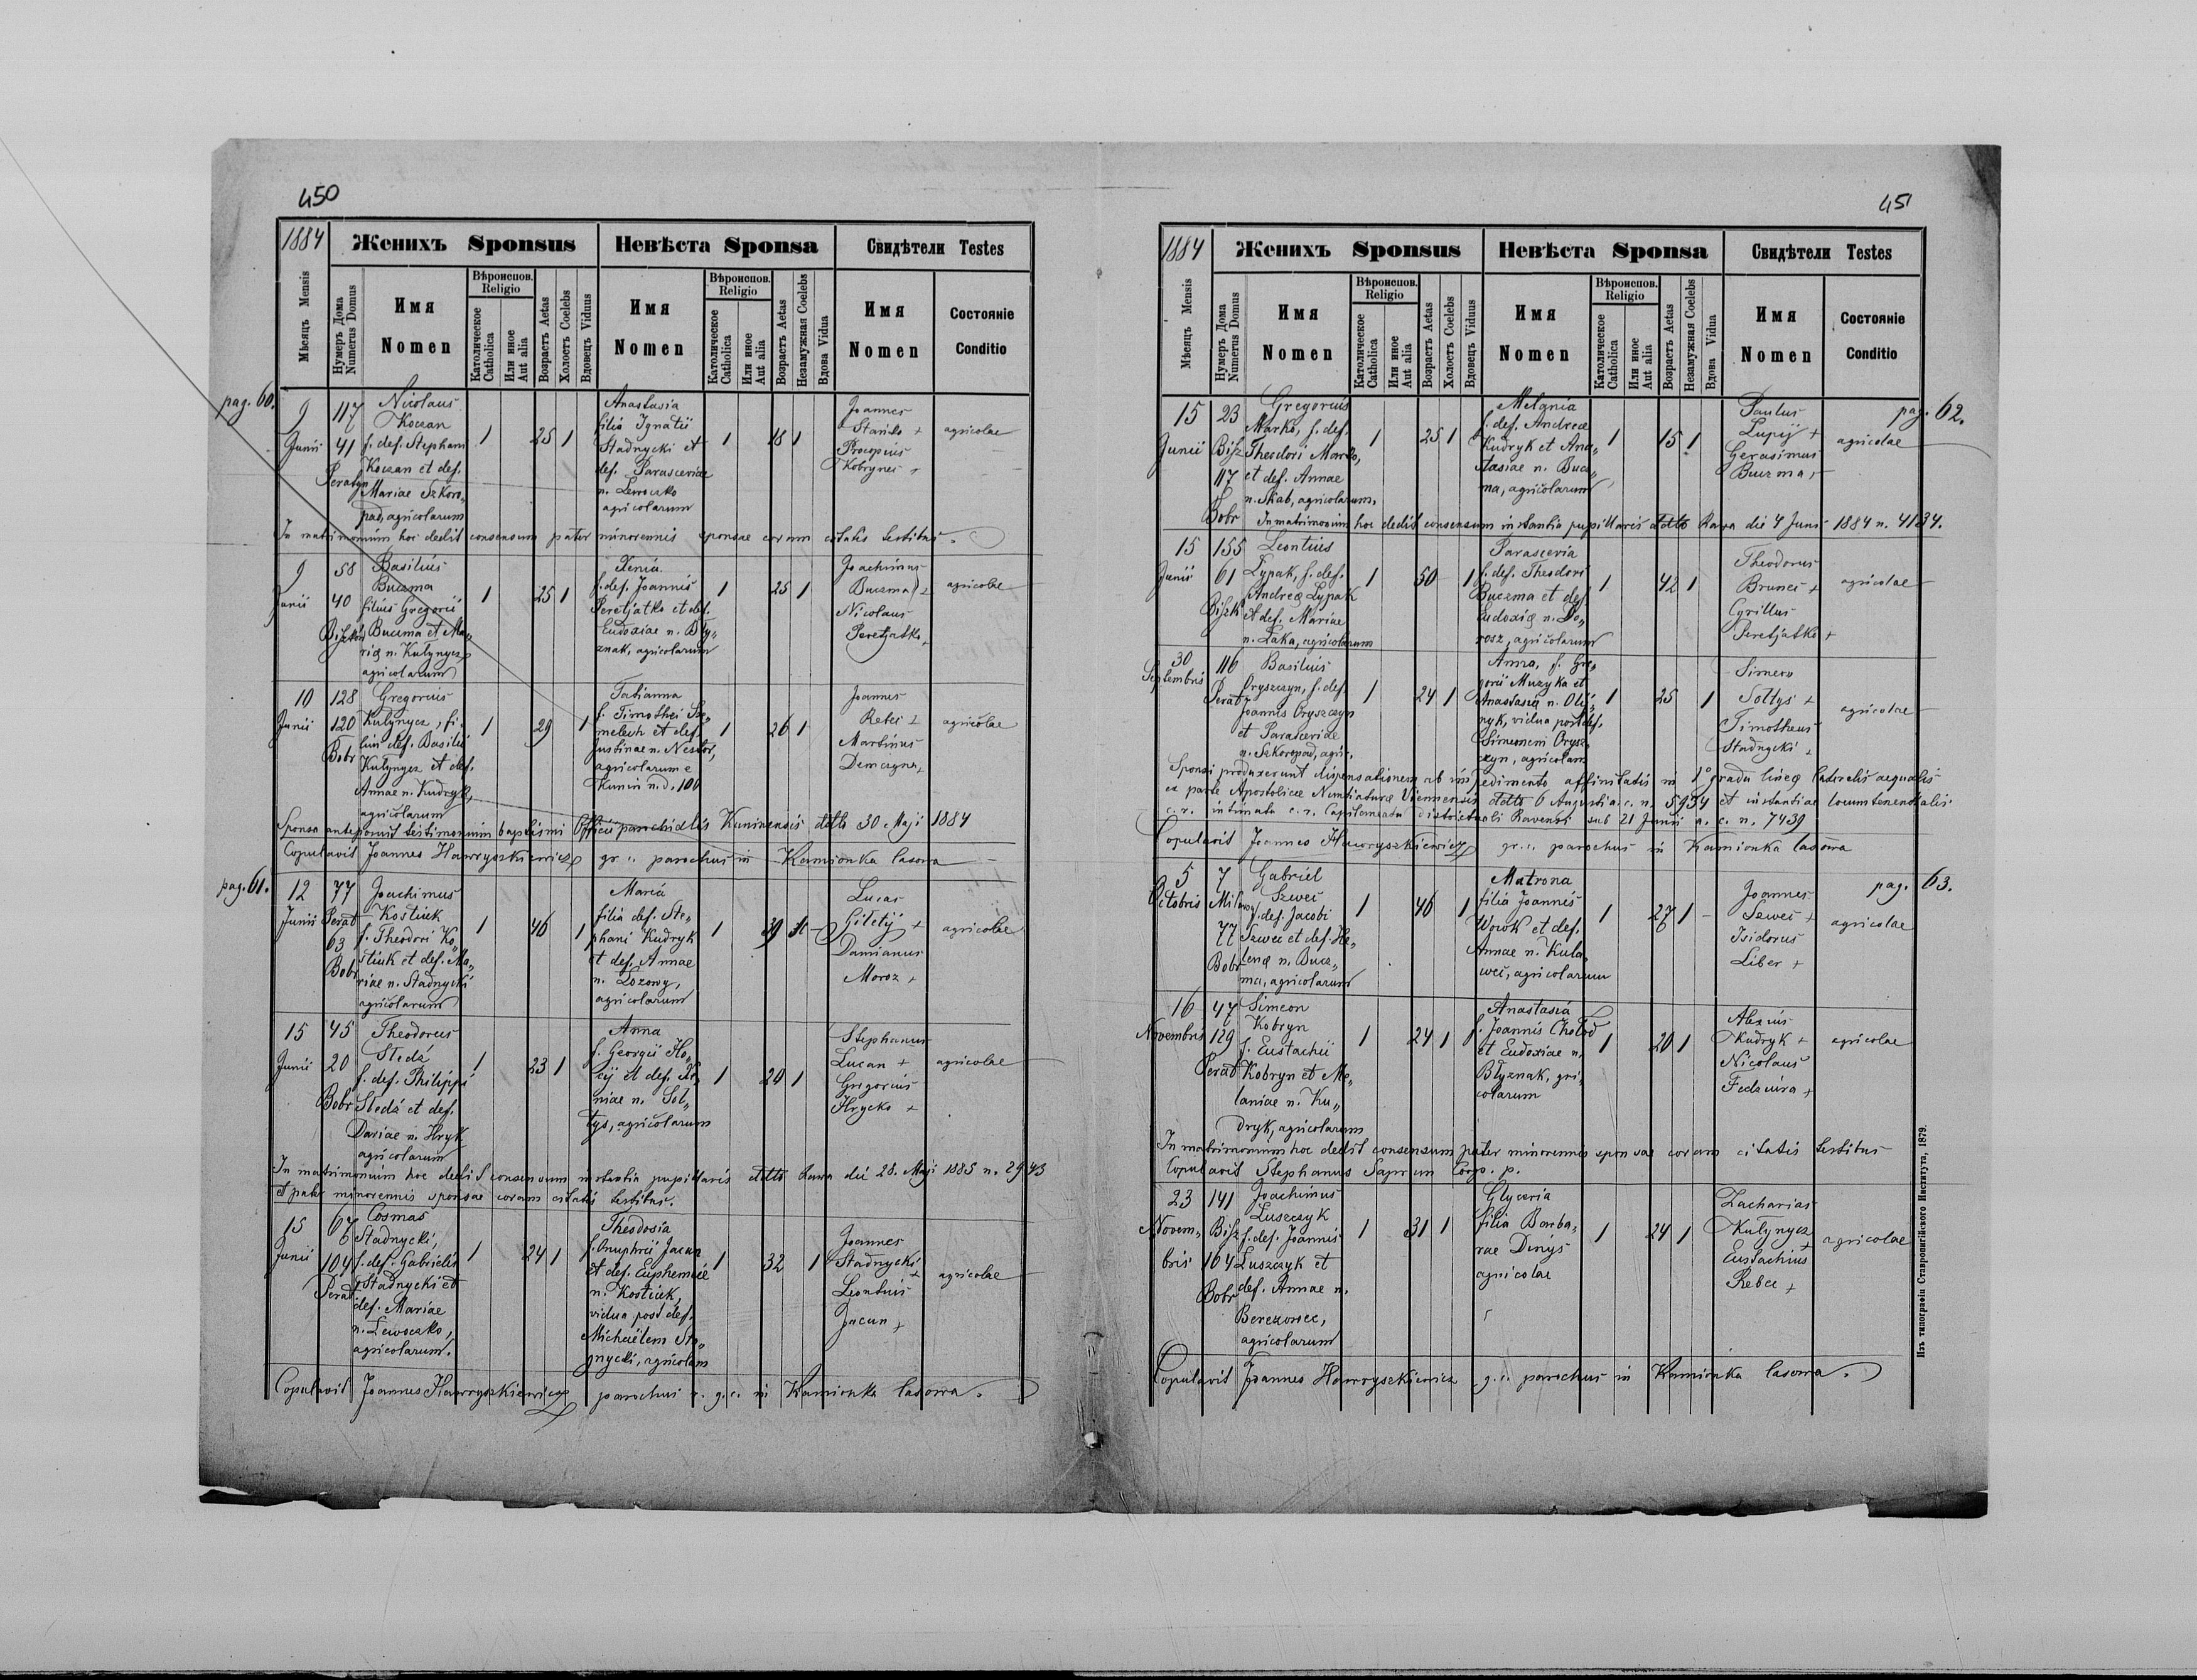 450
1884 Женихъ Sponsus Невѣста Sponsa Свидѣтели Testes
Мѣсяцъ Mensis
Нумеръ Дома Numerus Domus
Имя Nomen
Вѣроиспов. Religio
Католическое Catholica
Или иное Aut alia
Возрастъ Aetas
Холостъ Coelebs
Вдовецъ Viduus
Имя Nomen
Вѣроиспов. Religio
Католическое Catholica
Или иное Aut alia
Возрастъ Aetas
Незамужная Coelebs
Вдова Vidua
Имя Nomen
Состоянiе Conditio
pag. 60.
9 Junii
117
41
Peratyn
Nicolaus
Koczan
f. def. Stephani
Koczan et def.
Mariae Szkoro„
pad, agricolarum
1 25 1
Anastasia
filia Ignatii
Stadnycki et
def. Parasceviae
n. Lewoczko
agricolarum
1 18 1
Joannes
Stańko +
Procopius
Kobrynec +
agricolae
In matrimonium hoc dedit consensum pater minorennis sponsae coram citatis testibus.
9 Junii
58
40
Basilius
Buczma
filius Gregorii
Buczma et Ma„
riae n. Kulynycz
agricolarum
1 25 1
Xenia
f. def. Joannis
Peretjatko et def.
Eudoxiae n. Bły„
znak, agricolarum
1 25 1
Joachimus
Buczma +
Nicolaus
Peretjatko +
agricolae
10 Junii
128
120
Bobr
Gregorius
Kulynycz, fi„
lius def. Basilii
Kulynycz et def.
Annae n. Kudryk,
agricolarum
1 29 1
Tatianna
f. Timothei Sze„
meluch et def.
Justinae n. Nestor,
agricolarum e
Kunin n.d. 100
1 26 1
Joannes
Rebci +
Martinus
agricolae
Sponsa anteposuit testimonium baptismi Officii parochialis Kuninensis ddto 30 Maji 1884
Copulavit Joannes Hawryszkiewicz gr. c. parochus in Kamionka lasowa
pag. 61.
12 Junii
77 Perat
63 Bobr
Joachimus
Kostiuk
f. Theodori Ko„
stiuk et def. Ma„
riae n. Stadnycki
agricolarum
1 46 1
Maria
filia def. Ste„
phani Kudryk
et def. Annae
n. Łozowy,
agricolarum
1 39
Lucas
Giletij +
Damianus
Moroz +
agricolae
15 Junii
45
20
Bobr
Theodorus
Słedź
f. def. Philippi
Słedź et def.
Dariae n. Hryk
agricolarum
1 23 1
Anna
f. Georgii Ho„
cij et def. Xe„
niae n. Soł„
tys, agricolarum
1 20 1
Stephanus
Lucan +
Gregorius
Hrycko +
agricolae
In matrimonium hoc dedit consensum instantia pupillaris ddto Rawa die 28. Maji 1885 n. 2943
et pater minorennis sponsae coram citatis testibus.
15 Junii
67
104
Perat
Cosmas
Stadnycki,
f. def. Gabrielis
Stadnycki et
def. Mariae
n. Lewoczko,
agricolarum.
1 24 1
Theodosia
f. Onuphrii Jacun
et def. Euphemiae
n. Kostiuk,
vidua post def.
Michaëlem Sta„
dnycki, agricolam
1 32 1
Joannes
Stadnycki +
Leontius
Jacun +
agricolae
Copulavit Joannes Hawryszkiewicz parochus r. g. c. in Kamionka lasowa.
451
1884 Женихъ Sponsus Невѣста Sponsa Свидѣтели Testes
Мѣсяцъ Mensis
Нумеръ Дома Numerus Domus
Имя Nomen
Вѣроиспов. Religio
Католическое Catholica
Или иное Aut alia
Возрастъ Aetas
Холостъ Coelebs
Вдовецъ Viduus
Имя Nomen
Вѣроиспов. Religio
Католическое Catholica
Или иное Aut alia
Возрастъ Aetas
Незамужная Coelebs
Вдова Vidua
Имя Nomen
Состоянiе Conditio
pag. 62.
15 Junii
23 Bisz
117 Bobr
Gregorius
Marko, f. def.
Theodori Marko,
et def. Annae
n. Skab, agricolarum,
1 25 1
Melania
f. def. Andreae
Kudryk et Ana„
stasiae n. Bucz„
ma, agricolarum
1 15 1
Paulus
Lupij +
Gerasimus
Buczma +
agricolae
In matrimonium hoc dedit consensum instantia pupillaris ddto Rawa die 4 Juni 1884 n. 4134.
15 Junii
155
61
Leontius
Łypak, f. def.
Andreae Łypak
et def. Mariae
n. Łaka, agricolarum
1 50 1
Parascevia
f. def. Theodori
Buczma et def.
Eudoxiae n. Do„
rosz, agricolarum
1 42 1
Theodorus
Brunec +
Cyrillus
Peretjatko +
agricolae
30 Septembris
116 Perat
Basilius
Oryszczyn, f. def.
Joannis Oryszczyn
et Parasceviae
n. Szkoropad, agri.
1 24 1
Anna, f. Gre„
gorii Muzyka et
Anastasiae n. Olij„
nyk, vidua post def.
Simeonem Orysz„
czyn, agricolam
1 25 1
Simeon
Sołtys +
Timotheus
Stadnycki +
agricolae
Sponsi produxerunt dispensationem ab impedimento affinitatis in 1° gradu lineae lateralis aequalis
ex parte Apostolicae Nuntiaturae Viennensis ddto 6 Augusti a. c. n. 5954 et instantiae locumtenentialis
c. r. intimata c. r. Capitaneatu districtuali Ravensi sub 21 Junii a. c. n. 7439
Copulavit Joannes Hawryszkiewicz gr. c. parochus in Kamionka lasowa
pag. 63.
5 Octobris
7
77 Bobr
Gabriel
Szwec
f. def. Jacobi
Szwec et def. He„
lenae n. Bucz„
ma, agricolarum
1 46 1
Matrona
filia Joannis
Wowk et def.
Annae n. Kula„
wec, agricolarum
1 27 1
Joannes
Szwec +
Isidorus
Liber +
agricolae
16 Novembris
47
129
Perat
Simeon
Kobryn
f. Eustachii
Kobryn et Me„
laniae n. Ku„
dryk, agricolarum
1 24 1
Anastasia
f. Joannis Chołod
et Eudoxiae n.
Błyznak, gri„
colarum
1 20 1
Alexius
Kudryk +
Nicolaus
Fedzióra +
agricolae
In matrimonium hoc dedit consensum pater minorennis sponsae coram citatis testibus
Copulavit Stephanus Saprun Coop. p.
23 Novem„
bris
141 Bisz
164 Bobr
Joachimus
Łuszczyk
f. def. Joannis
Łuszczyk et
def. Annae n.
Berezowec,
agricolarum
1 31 1
Glyceria
filia Barba„
rae Dinys
agricolae
1 24 1
Zacharias
Kulynycz +
Eustachius
Rebec +
agricolae
Copulavit Joannes Hawryszkiewicz g. c. parochus in Kamionka lasowa.
Изъ типографіи Ставропигійского Института, 1879.